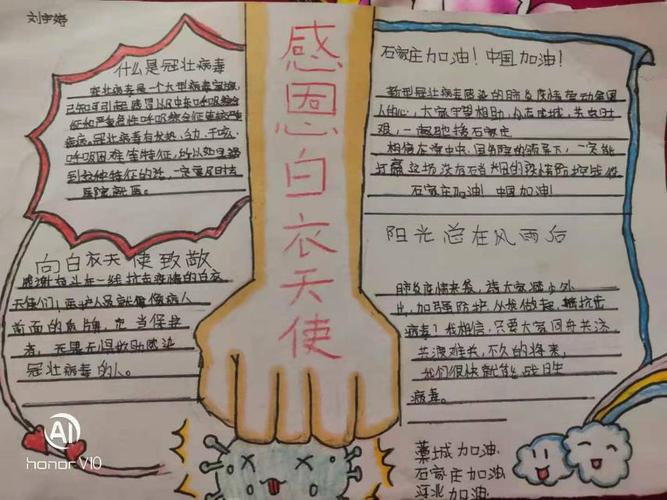 刘宇婷
感恩白衣天使
什么是冠壮病毒
冠壮病毒是一个大型病毒家族,
已知可引起感冒以及中东呼吸综合
征和严重急性呼吸综合征等较严重
疾病。冠壮病毒有发热、乏力、干咳、
呼吸困难等特征,所以如果遇
到这种特征的话,一定要及时去
医院就医。
向白衣天使致敬
感谢奋斗在一线抗击疫情的白衣
天使们,医护人员就像病人
前面的盾牌,充当保护
者,无畏无惧救助感染
冠壮病毒的人。
石家庄加油!中国加油!
新型冠壮病毒感染的肺炎疫情牵动全国
人的心,大家守望相助,众志成城,共克时
艰,一起驰援石家庄
相信在党中央、国务院的领导下,一定能
打赢这场没有硝烟的疫情防控战役
石家庄加油!中国加油!
阳光总在风雨后
肺炎疫情来袭,请大家减少外
出,加强防护,从我做起,抵抗击
病毒!我相信,只要大家同舟共济,
共渡难关,不久的将来,
我们很快就能战胜
病毒。
藁城加油
石家庄加油
河北加油
AI
honor V10